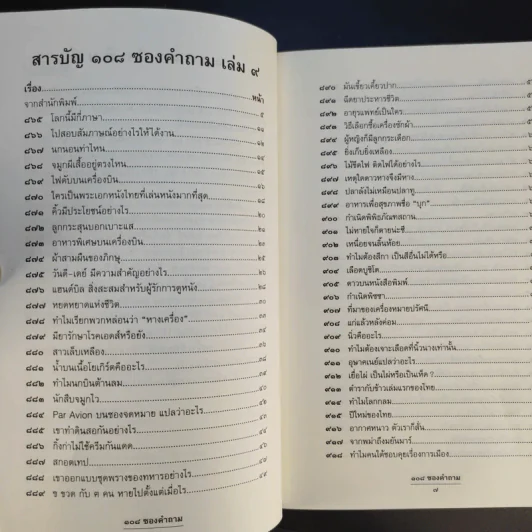 สารบัญ ๑๐๘ ซองคำถาม เล่ม ๙
เรื่อง หน้า
จากสำนักพิมพ์ ๕
๘๖๕ โลกนี้มีกี่ภาษา
๘๖๖ ไปสอบสัมภาษณ์อย่างไรให้ได้งาน
๘๖๗ นกนอนท่าไหน
๘๖๘ จมูกผีเสื้ออยู่ตรงไหน
๘๖๙ ไฟดับบนเครื่องบิน
๘๗๐ ใครเป็นพระเอกหนังไทยที่เล่นหนังมากที่สุด
๘๗๑ คิ้วมีประโยชน์อย่างไร
๘๗๒ ลูกกระสุนบอกเบาะแส
๘๗๓ อาหารพิเศษบนเครื่องบิน
๘๗๔ ผ้าสามผืนของภิกษุ
๘๗๕ วันดี-เดย์ มีความสำคัญอย่างไร
๘๗๖ แฮนด์บิล สิ่งสะสมสำหรับผู้รักการดูหนัง
๘๗๗ หยดหยาดแห่งชีวิต
๘๗๘ ทำไมเรียกพวกหล่อนว่า "หางเครื่อง"
๘๗๙ มียารักษาโรคเอดส์หรือยัง
๘๘๐ สาวเล็บเหลือง
๘๘๑ น้ำบนเนื้อโยเกิร์ตคืออะไร
๘๘๒ ทำไมนกบินต้านลม
๘๘๓ นักสืบจมูกไว
๘๘๔ Par Avion บนซองจดหมาย แปลว่าอะไร
๘๘๕ เขาทำดินสอกันอย่างไร
๘๘๖ กิ้งก่าไม่ใช้ครีมกันแดด
๘๘๗ สกอตเทป
๘๘๘ เขาออกแบบชุดพรางของทหารอย่างไร
๘๘๙ ฃ ขวด กับ ฅ คน หายไปตั้งแต่เมื่อไร
๑๐๘ ซองคำถาม
๘๙๐ มันเขี้ยวเคี้ยวปาก
๘๙๑ ฉีดยาประหารชีวิต
๘๙๒ อายุรแพทย์เป็นใคร
๘๙๓ วิธีเลือกซื้อเครื่องซักผ้า
๘๙๔ ผู้หญิงก็มีลูกกระเดือก
๘๙๕ ยิ่งเก็บยิ่งเหลือง
๘๙๖ ไม้ขีดไฟ ติดไฟได้อย่างไร
๘๙๗ เหตุใดดาวหางจึงมีหาง
๘๙๘ ปลาลังไม่เหมือนปลาทู
๘๙๙ อาหารเพื่อสุขภาพชื่อ "บุก"
๙๐๐ กำเนิดพิพิธภัณฑสถาน
๙๐๑ ไม่หายใจก็ตายน่ะซี
๙๐๒ เหนื่อยจนลิ้นห้อย
๙๐๓ ทำไมต้องสีกา เป็นสีอื่นไม่ได้หรือ
๙๐๔ เลือดบูชิโด
๙๐๕ ดาวบนหนังสือพิมพ์
๙๐๖ กำเนิดพิซซา
๙๐๗ ที่มาของเครื่องหมายปรัศนี
๙๐๘ แก่แล้วหลังค่อม
๙๐๙ นิ่วคืออะไร
๙๑๐ ทำไมต้องเจาะเลือดที่นิ้วนางเท่านั้น
๙๑๑ อุษาคเนย์แปลว่าอะไร
๙๑๒ เยื่อไผ่ เป็นไผ่หรือเป็นเห็ด ?
๙๑๓ ตำรากับข้าวเล่มแรกของไทย
๙๑๔ ทำไมโลกกลม
๙๑๕ ปีใหม่ของไทย
๙๑๖ อากาศหนาว ตัวเราก็สั่น
๙๑๗ จากพม่าถึงเมียนมาร์
๙๑๘ ทำไมคนใต้ชอบคุยเรื่องการเมือง
๑๐๘ ซองคำถาม
๗